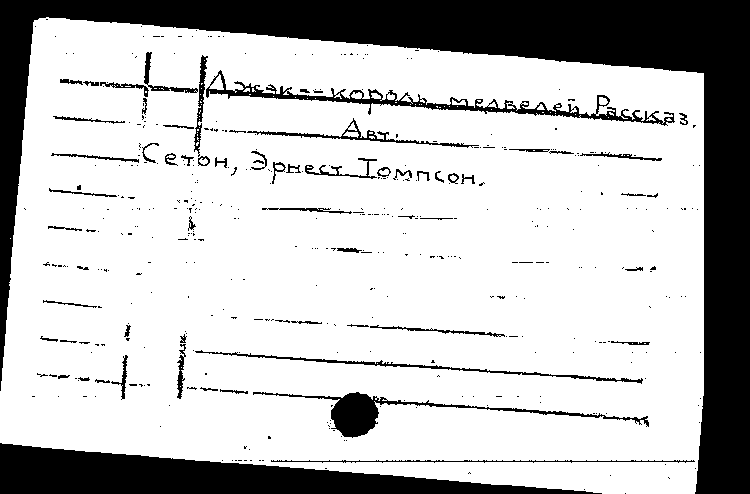 Джэк--король медведей. Рассказ.
Авт.
Сетон, Эрнест Томпсон.